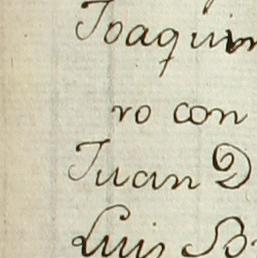 Joaquin
ro con
Juan D
Luis B